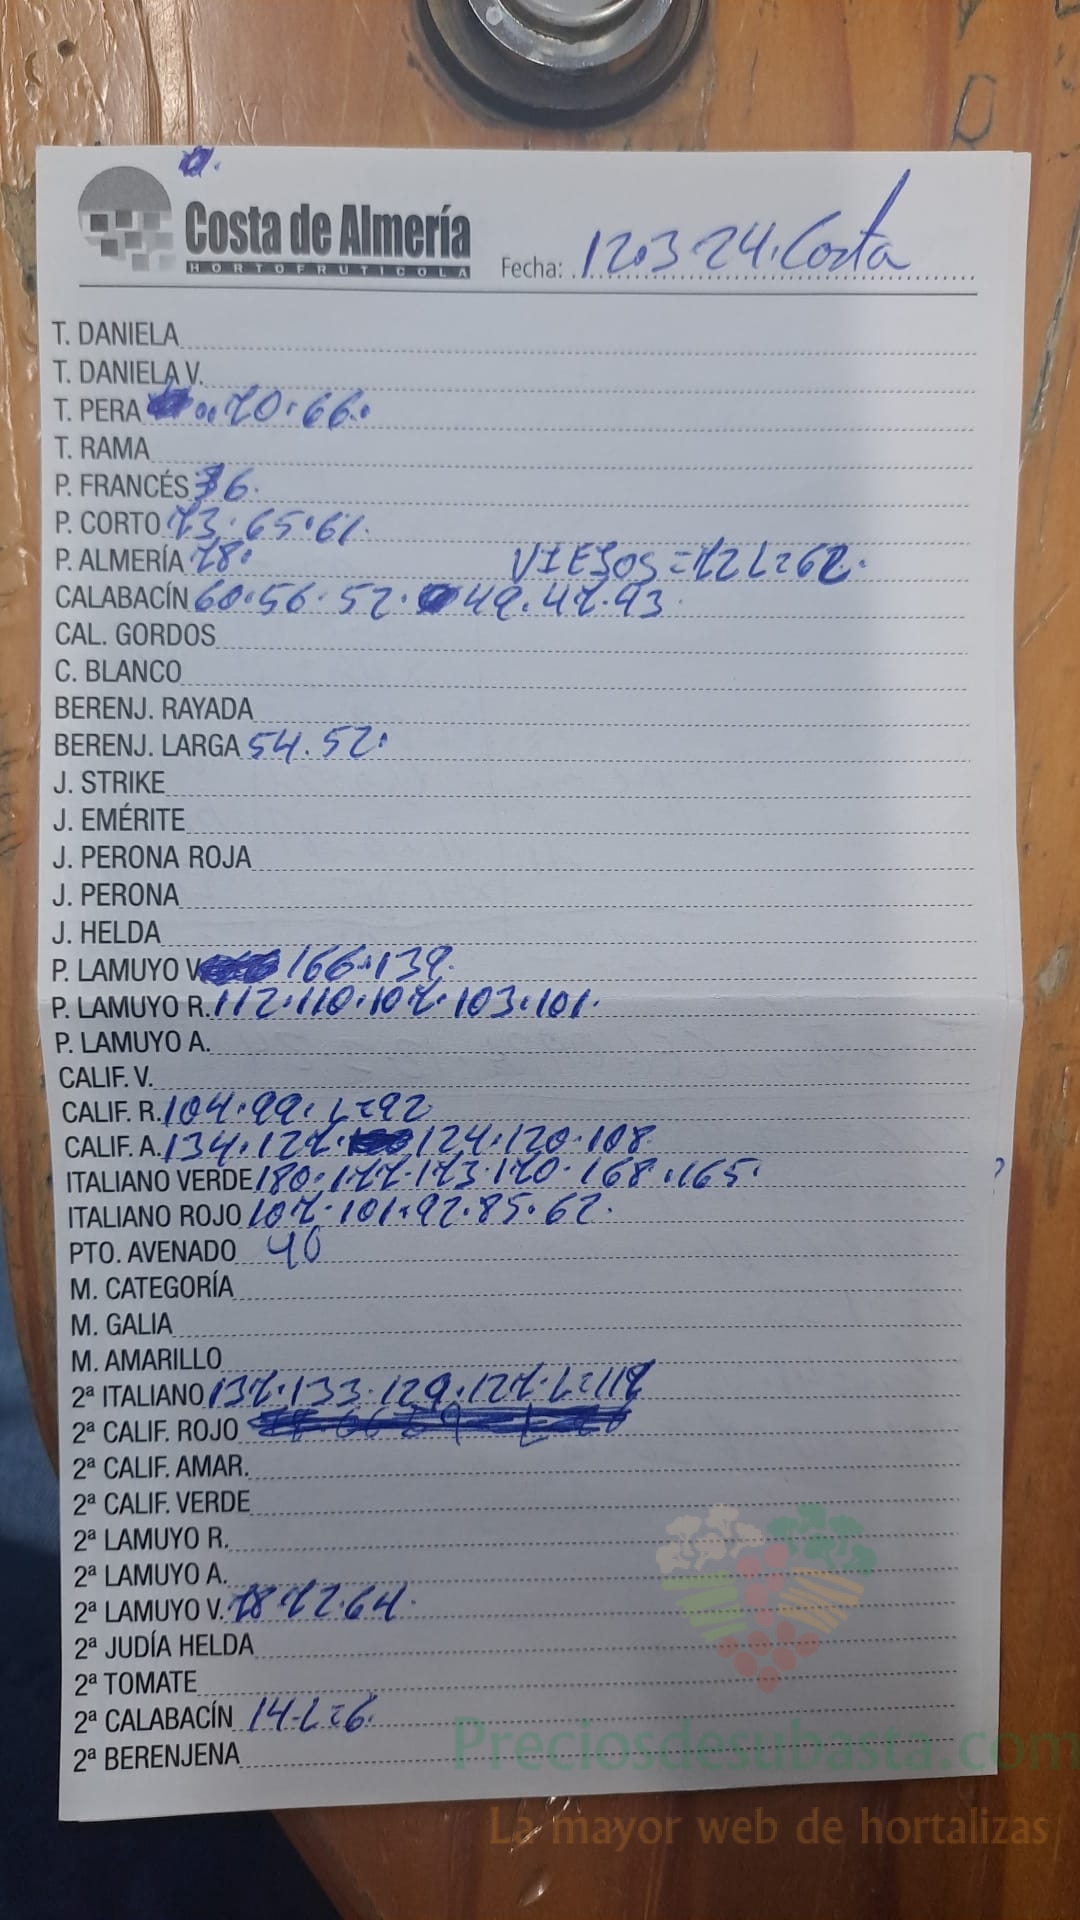 Costa de Almería
HORTOFRUTICOLA
Fecha: 12.3 24. Costa
T. DANIELA
T. DANIELA V.
T. PERA 70. 66.
T. RAMA
P. FRANCÉS 36.
P. CORTO 73. 65. 61.
P. ALMERÍA 78. VIEJOS = 72 L = 62.
CALABACÍN 60. 56. 52. 49. 47. 43
CAL. GORDOS
C. BLANCO
BERENJ. RAYADA
BERENJ. LARGA 54. 52.
J. STRIKE
J. EMÉRITE
J. PERONA ROJA
J. PERONA
J. HELDA
P. LAMUYO V. 166. 139.
P. LAMUYO R. 112. 110. 107. 103. 101.
P. LAMUYO A.
CALIF. V.
CALIF. R. 104. 99. L = 92
CALIF. A. 134. 127. 124. 120. 108.
ITALIANO VERDE 180. 177. 173. 170. 168. 165.
ITALIANO ROJO 107. 101. 92. 85. 62.
PTO. AVENADO 40
M. CATEGORÍA
M. GALIA
M. AMARILLO
2ª ITALIANO 137. 133. 129. 127. L = 117
2ª CALIF. ROJO
2ª CALIF. AMAR.
2ª CALIF. VERDE
2ª LAMUYO R.
2ª LAMUYO A.
2ª LAMUYO V. 78 72. 64.
2ª JUDÍA HELDA
2ª TOMATE
2ª CALABACÍN 14. L = 6.
2ª BERENJENA
Preciosdesubasta.com
La mayor web de hortalizas